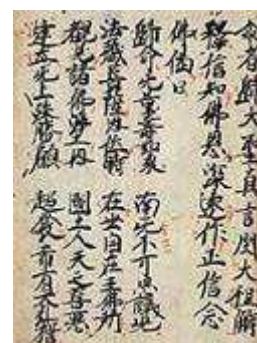 尒者歸大聖真言閲大祖解
釋信知佛恩深遠作正信念
佛偈曰
歸命无量壽如来 南无不可思議光
法藏菩薩因位時 在世自在王佛所
覩見諸佛淨土因 國土人天之善惡
建立无上殊勝願 超發希有大弘誓